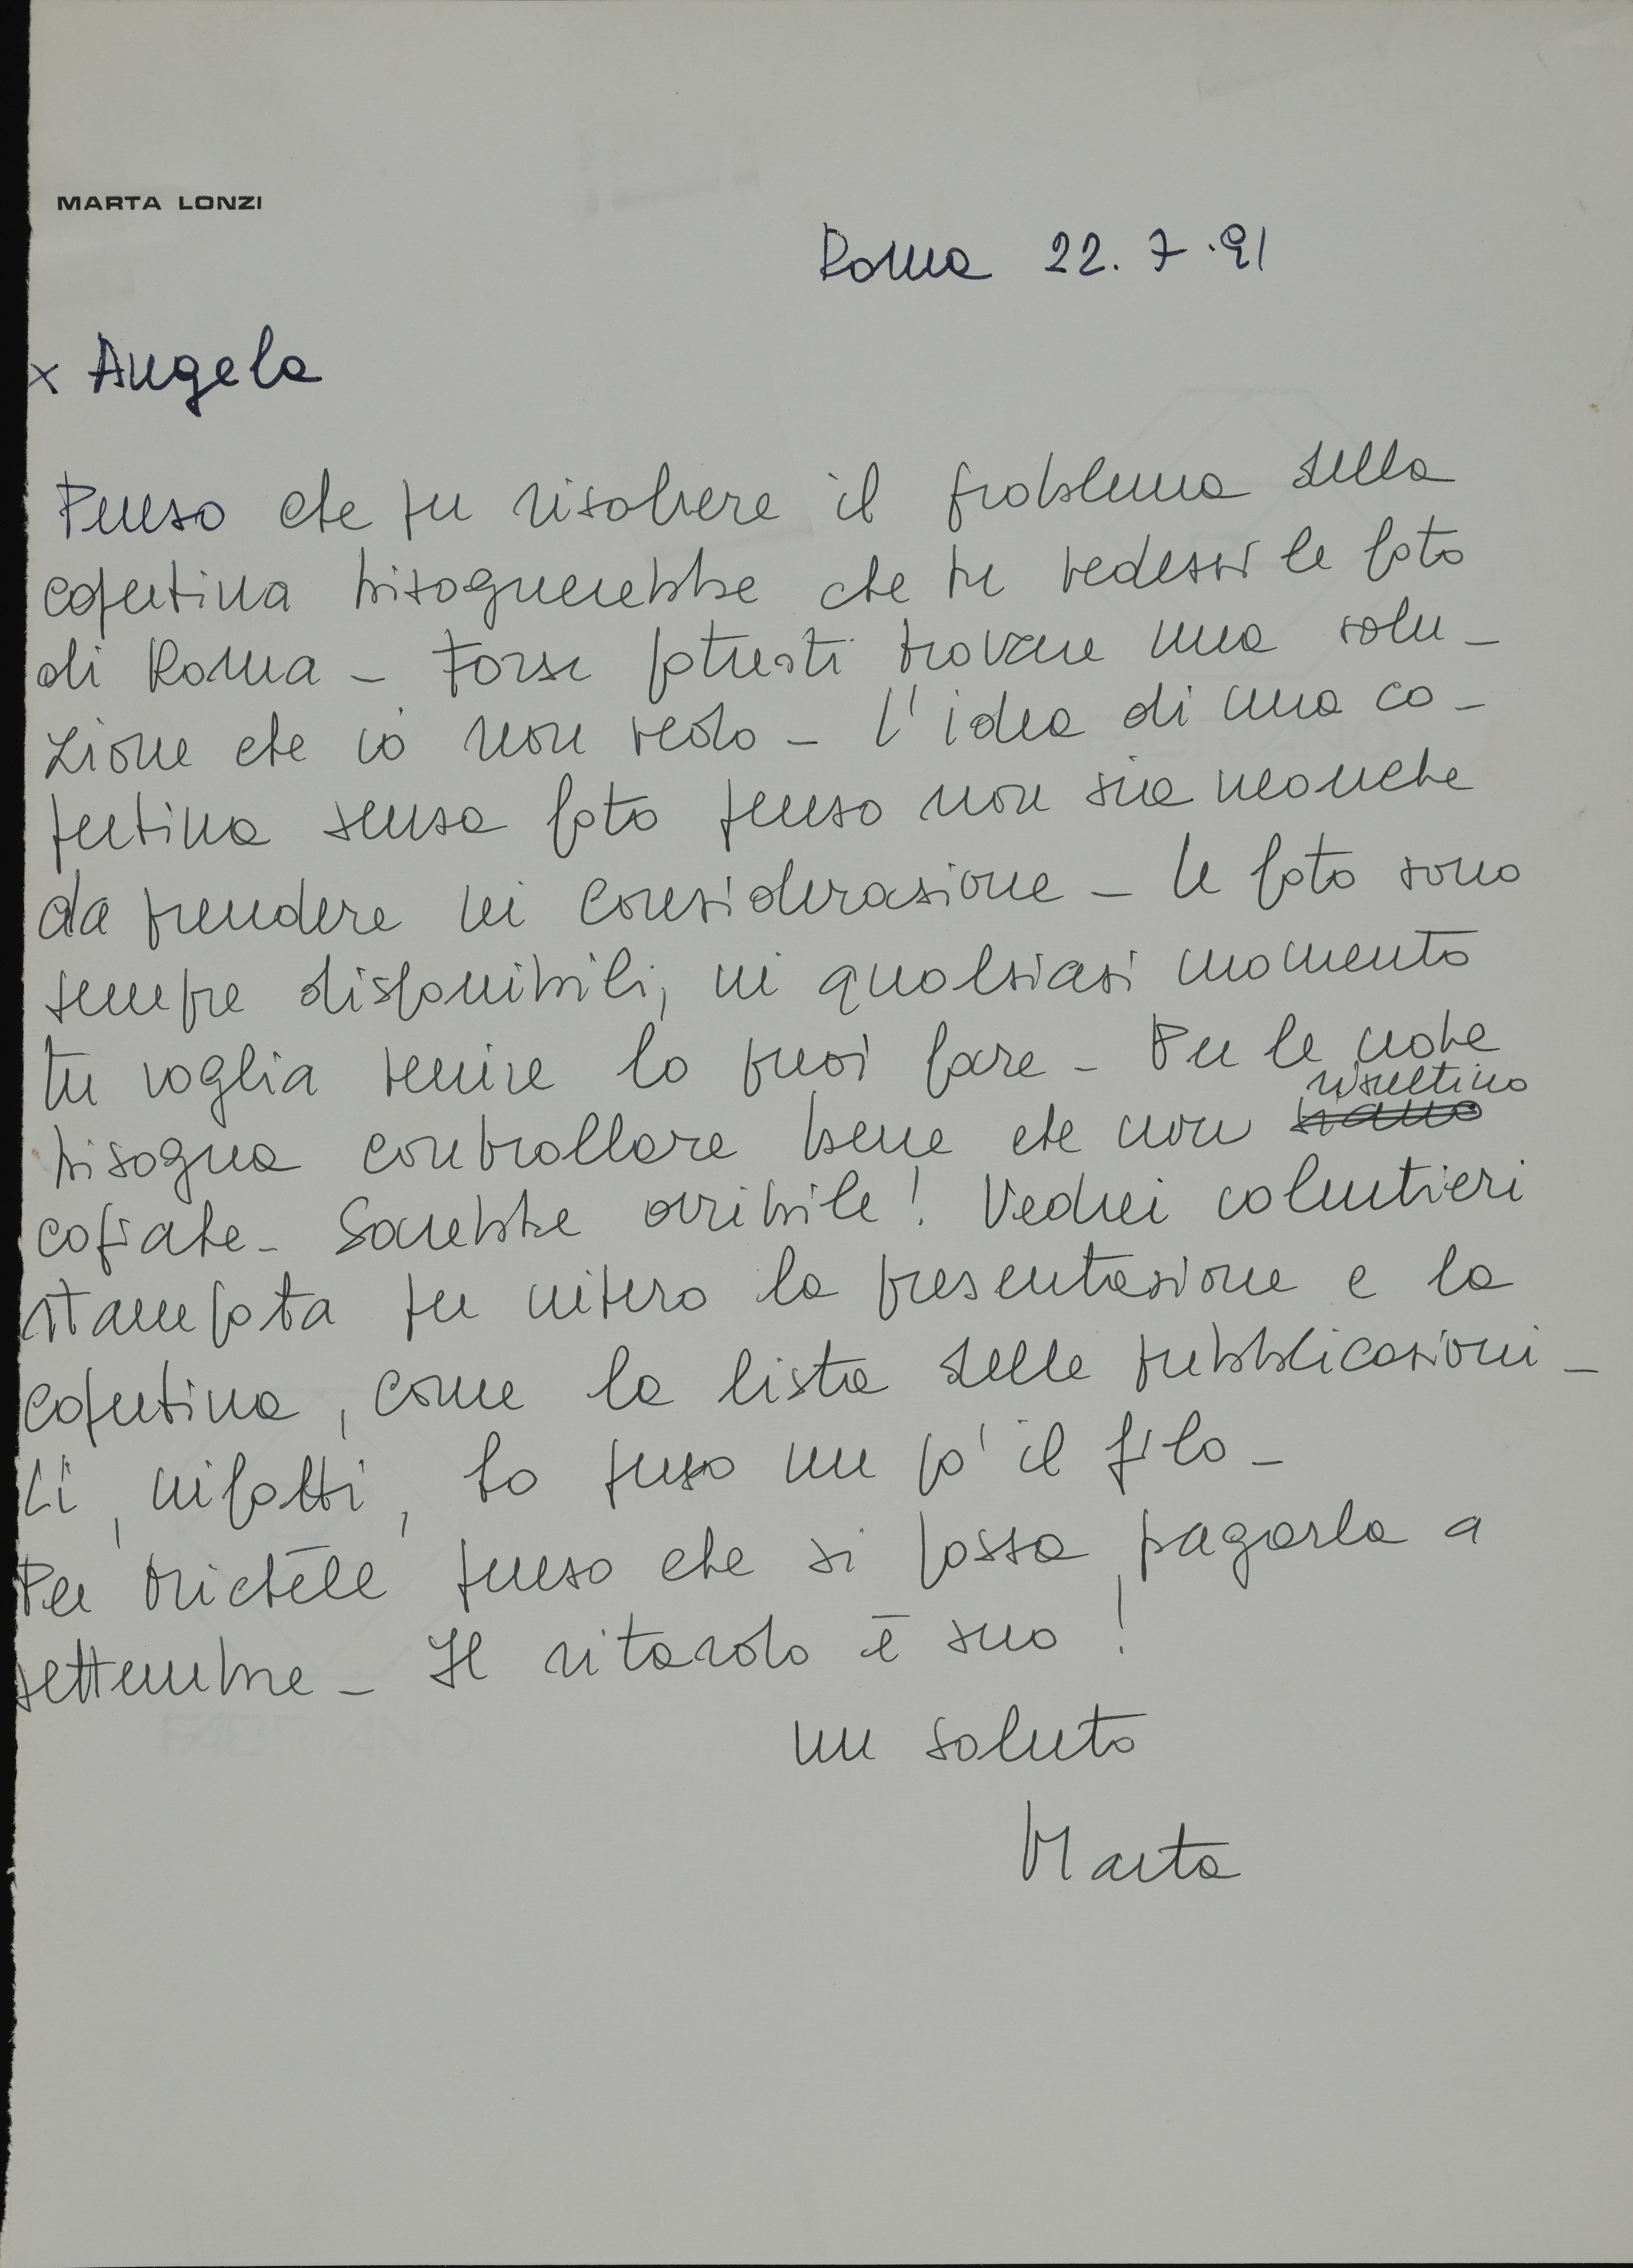 MARTA LONZI
Roma 22.7.91
x Angela
Penso che per risolvere il problema della
copertina bisognerebbe che tu vedessi le foto
di Roma - Forse potresti trovare una solu-
zione che io non vedo - L'idea di una co-
pertina senza foto penso non sia neanche
da prendere in considerazione - Le foto sono
sempre disponibili, in qualsiasi momento
tu voglia venire lo puoi fare - Per le note
risultino
bisogna controllare bene che non siano
copiate - Sarebbe orribile! Vedrei volentieri
stampata per intero la presentazione e la
copertina, come la lista delle pubblicazioni -
Lì, infatti, ho perso un po' il filo -
Per Michèle penso che si possa pagarla a
settembre - Il ritardo è suo!
un saluto
Marta